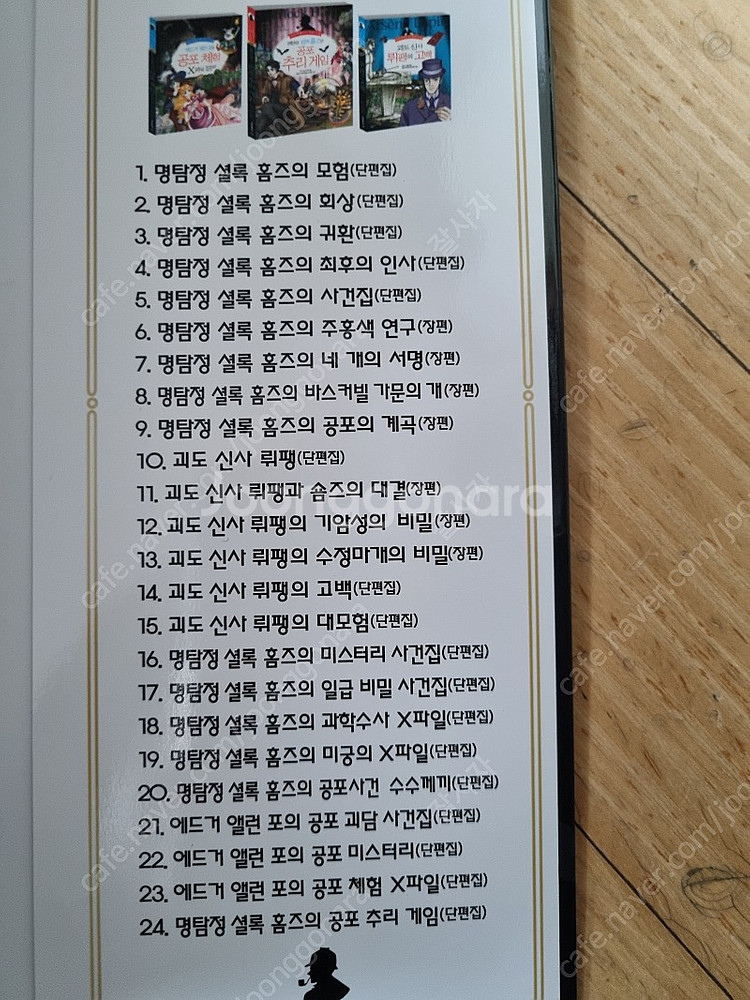 에드거 앨런 포의
공포 체험
X파일
공포
추리 게임
괴도 신사
뤼팽의 고백
1. 명탐정 셜록 홈즈의 모험(단편집)
2. 명탐정 셜록 홈즈의 회상(단편집)
3. 명탐정 셜록 홈즈의 귀환(단편집)
4. 명탐정 셜록 홈즈의 최후의 인사(단편집)
5. 명탐정 셜록 홈즈의 사건집(단편집)
6. 명탐정 셜록 홈즈의 주홍색 연구(장편)
7. 명탐정 셜록 홈즈의 네 개의 서명(장편)
8. 명탐정 셜록 홈즈의 바스커빌 가문의 개(장편)
9. 명탐정 셜록 홈즈의 공포의 계곡(장편)
10. 괴도 신사 뤼팽(단편집)
11. 괴도 신사 뤼팽과 숌즈의 대결(장편)
12. 괴도 신사 뤼팽의 기암성의 비밀(장편)
13. 괴도 신사 뤼팽의 수정마개의 비밀(장편)
14. 괴도 신사 뤼팽의 고백(단편집)
15. 괴도 신사 뤼팽의 대모험(단편집)
16. 명탐정 셜록 홈즈의 미스터리 사건집(단편집)
17. 명탐정 셜록 홈즈의 일급 비밀 사건집(단편집)
18. 명탐정 셜록 홈즈의 과학수사 X파일(단편집)
19. 명탐정 셜록 홈즈의 미궁의 X파일(단편집)
20. 명탐정 셜록 홈즈의 공포사건 수수께끼(단편집)
21. 에드거 앨런 포의 공포 괴담 사건집(단편집)
22. 에드거 앨런 포의 공포 미스터리(단편집)
23. 에드거 앨런 포의 공포 체험 X파일(단편집)
24. 명탐정 셜록 홈즈의 공포 추리 게임(단편집)
Joonggonara
cafe.naver.com/joonggonara